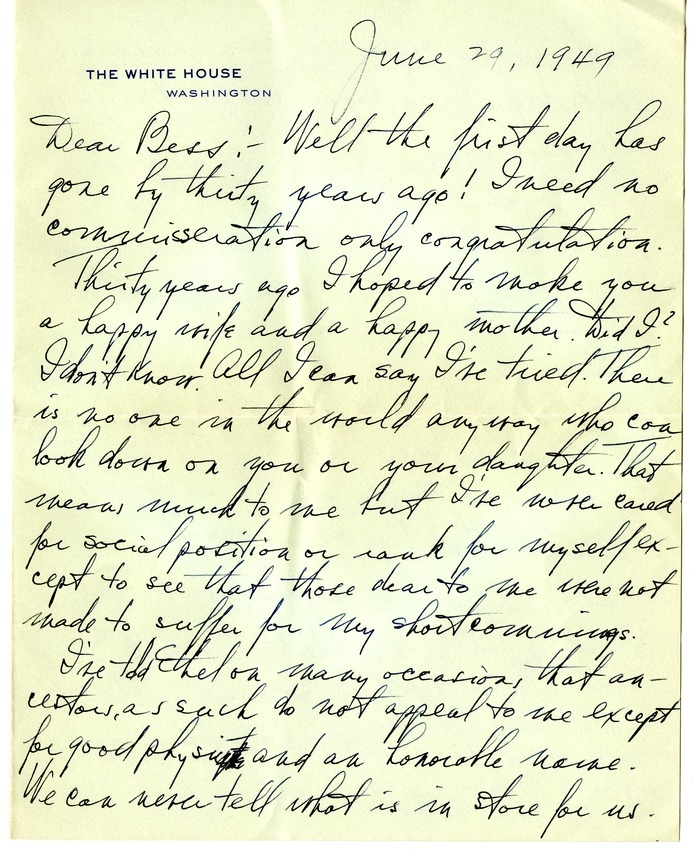 June 29, 1949
THE WHITE HOUSE
WASHINGTON
Dear Bess:- Well the first day has
gone by thirty years ago! I need no
commisseration only congratulation.
Thirty years ago I hoped to make you
a happy wife and a happy mother. Did I?
I don't know. All I can say I've tried. There
is no one in the world anyway who can
look down on you or your daughter. That
means much to me but I've never cared
for social position or rank for myself ex-
cept to see that those dear to me were not
made to suffer for my shortcommings.
I've told Ethel on many occasions, that an-
cestors, as such do not appeal to me except
for good and an honorable name.
We can never tell what is in store for us.